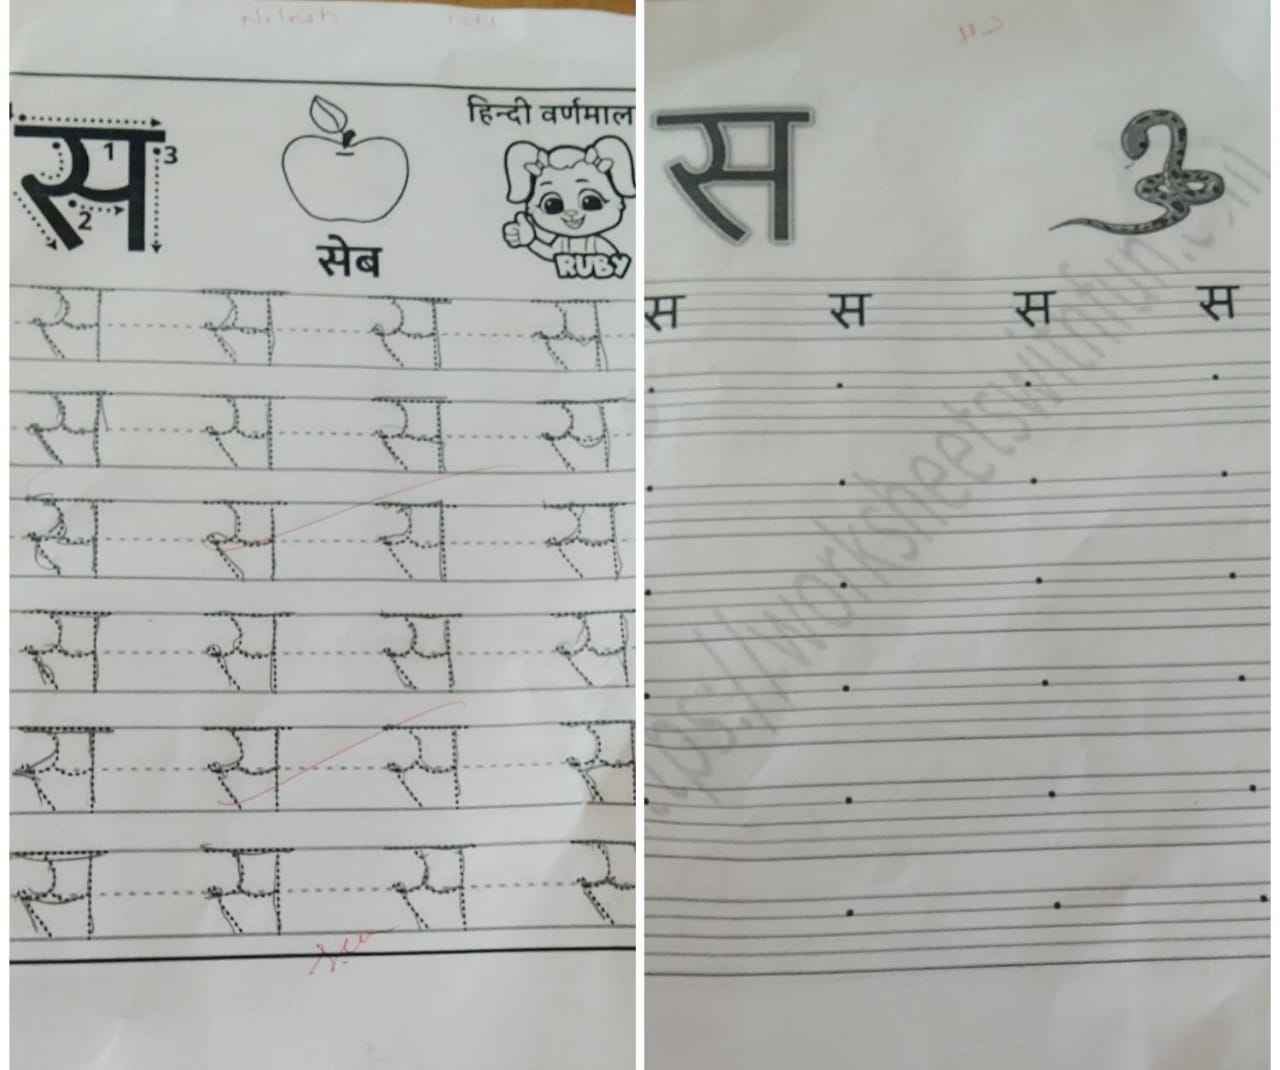 Nilesh
हिन्दी वर्णमाल
स
1
2
3
सेब
RUBY
स स स स
स स स स
स स स स
स स स स
स स स स
स स स स
H.W
स
स स स स
https://worksheetswithfun.